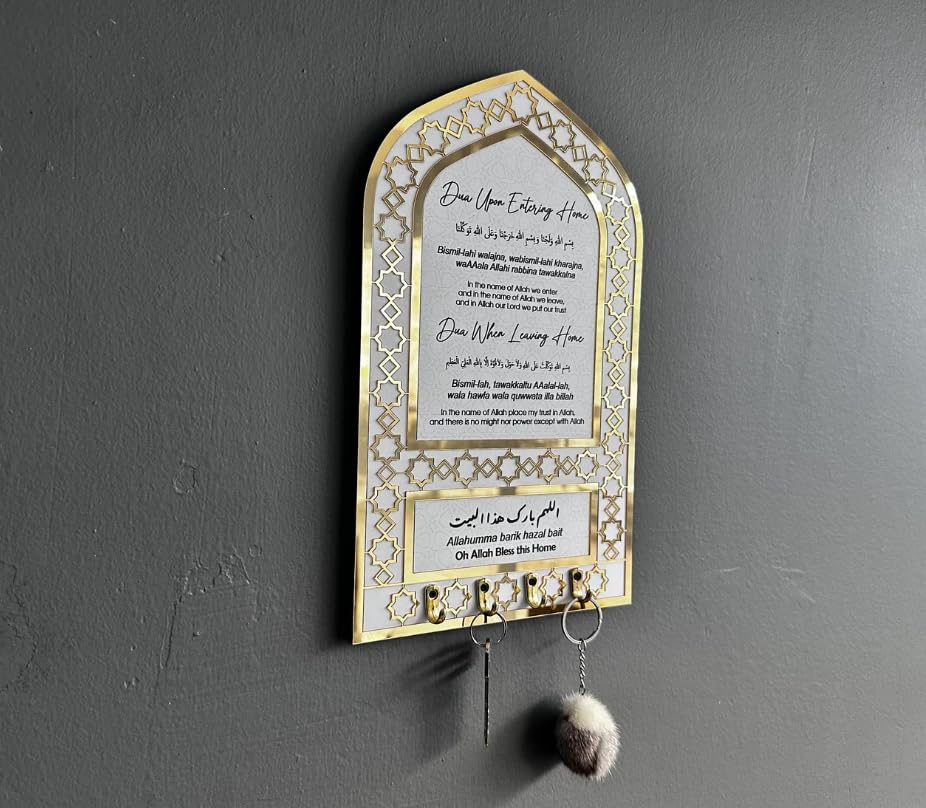 Dua Upon Entering Home
بِسْمِ اللهِ وَلَجْنَا وَبِسْمِ اللهِ خَرَجْنَا وَعَلَى اللهِ تَوَكَّلْنَا
Bismil-lahi walajna, wabismil-lahi kharajna,
waAAala Allahi rabbina tawakkalna
In the name of Allah we enter
and in the name of Allah we leave,
and in Allah our Lord we put our trust
Dua When Leaving Home
بِسْمِ اللهِ تَوَكَّلْتُ عَلَى اللهِ وَلَا حَوْلَ وَلَا قُوَّةَ إِلَّا بِاللهِ الْعَلِيِّ الْعَظِيمِ
Bismil-lah, tawakkaltu AAalal-lah,
wala hawla wala quwwata illa billah
In the name of Allah place my trust in Allah,
and there is no might nor power except with Allah
اللهم بارك هذا البيت
Allahumma barik hazal bait
Oh Allah Bless this Home